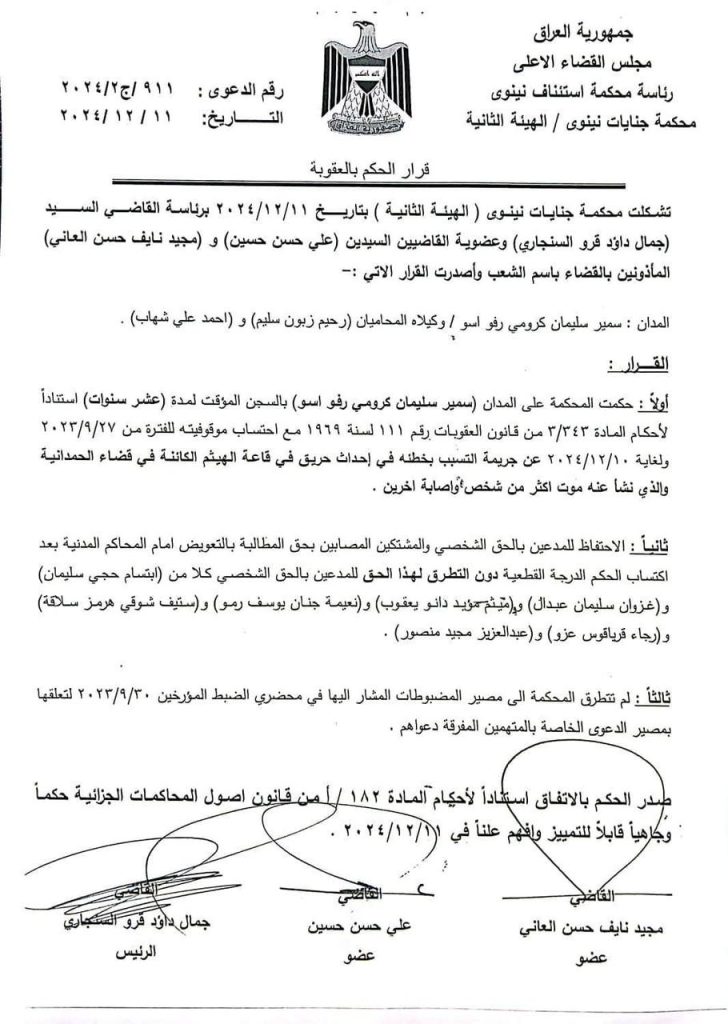 جمهورية العراق
مجلس القضاء الاعلى
رئاسة محكمة استئناف نينوى
محكمة جنايات نينوى / الهيئة الثانية
رقم الدعوى : ٩١١ /ج٢٠٢٤/٢
التـــاريخ: ١١ / ١٢ /٢٠٢٤
الله اكبر
جمهورية العراق
قرار الحكم بالعقوبة
تشكلت محكمة جنايات نينوى ( الهيئة الثانية ) بتاريخ ٢٠٢٤/١٢/١١ برئاسة القاضي السيد
(جمال داؤد قرو السنجاري) وعضوية القاضيين السيدين (علي حسن حسين) و (مجيد نايف حسن العاني)
المأذونين بالقضاء باسم الشعب وأصدرت القرار الاتي :-
المدان : سمير سليمان كرومي رفو اسو / وكيلاه المحاميان (رحيم زبون سليم) و (احمد علي شهاب) .
القـــرار :
أولاً : حكمت المحكمة على المدان (سمير سليمان كرومي رفو اسو) بالسجن المؤقت لمدة (عشر سنوات) استناداً
لأحكام المادة ٣/٣٤٣ من قانون العقوبات رقم ١١١ لسنة ١٩٦٩ مع احتساب موقوفيته للفترة من ٢٠٢٣/٩/٢٧
ولغاية ٢٠٢٤/١٢/١٠ عن جريمة التسبب بخطئه في إحداث حريق في قاعة الهيثم الكائنة في قضاء الحمدانية
والذي نشأ عنه موت اكثر من شخص وإصابة اخرين .
ثانياً : الاحتفاظ للمدعين بالحق الشخصي والمشتكين المصابين بحق المطالبة بالتعويض امام المحاكم المدنية بعد
اكتساب الحكم الدرجة القطعية دون التطرق لهذا الحق للمدعين بالحق الشخصي كلا من (ابتسام حجي سليمان)
و(غزوان سليمان عبدال) و(ميثم مؤيد دانو يعقوب) و(نعيمة جنان يوسف رمو) و(ستيف شوقي هرمز سلاقة)
و(رجاء قرياقوس عزو) و(عبدالعزيز مجيد منصور) .
ثالثاً : لم تتطرق المحكمة الى مصير المضبوطات المشار اليها في محضري الضبط المؤرخين ٢٠٢٣/٩/٣٠ لتعلقها
بمصير الدعوى الخاصة بالمتهمين المفرقة دعواهم .
صدر الحكم بالاتفاق استناداً لأحكام المادة ١٨٢ / أ من قانون اصول المحاكمات الجزائية حكماً
وجاهياً قابلاً للتمييز وافهم علناً في ٢٠٢٤/١٢/١١ .
القاضي
مجيد نايف حسن العاني
عضو
القاضي
علي حسن حسين
عضو
القاضي
جمال داؤد قرو السنجاري
الرئيس